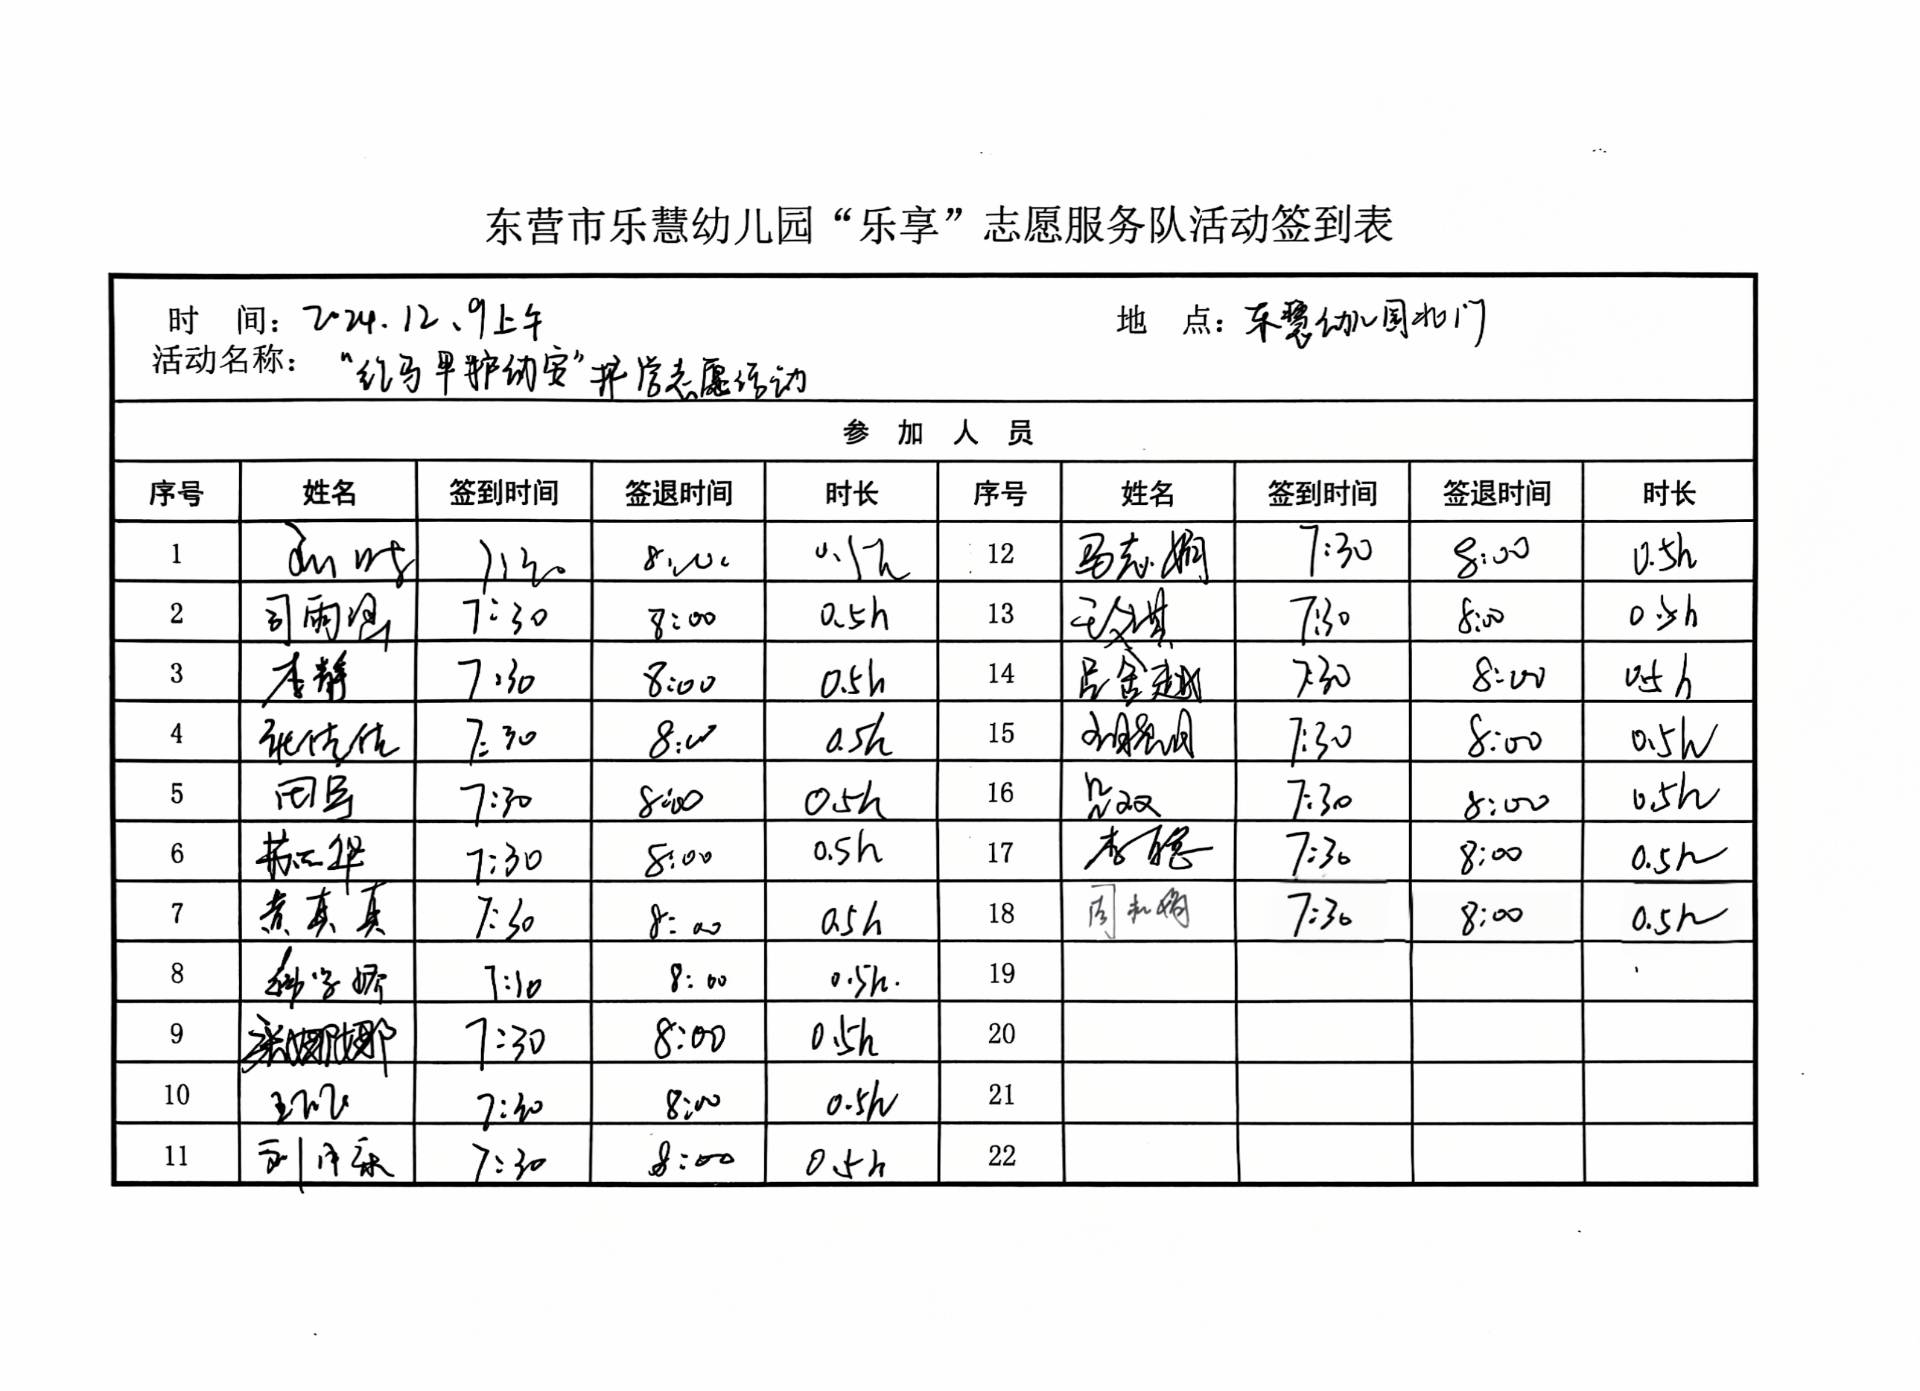 东营市乐慧幼儿园“乐享”志愿服务队活动签到表
时 间：2024.12、9上午 地 点：乐慧幼儿园北门
活动名称：“红马甲护幼安”护学志愿活动
参 加 人 员
序号 姓名 签到时间 签退时间 时长 序号 姓名 签到时间 签退时间 时长
1 7:30 8:00 0.5h 12 马志娟 7:30 8:00 0.5h
2 司雨 7:30 8:00 0.5h 13 7:30 8:00 0.5h
3 李静 7:30 8:00 0.5h 14 吕金 7:30 8:00 0.5h
4 张倩倩 7:30 8:00 0.5h 15 7:30 8:00 0.5h
5 田 7:30 8:00 0.5h 16 吕双 7:30 8:00 0.5h
6 7:30 8:00 0.5h 17 李聪 7:30 8:00 0.5h
7 真真 7:30 8:00 0.5h 18 周 娟 7:30 8:00 0.5h
8 7:30 8:00 0.5h. 19
9 娜娜 7:30 8:00 0.5h 20
10 王飞飞 7:30 8:00 0.5h 21
11 刘 7:30 8:00 0.5h 22